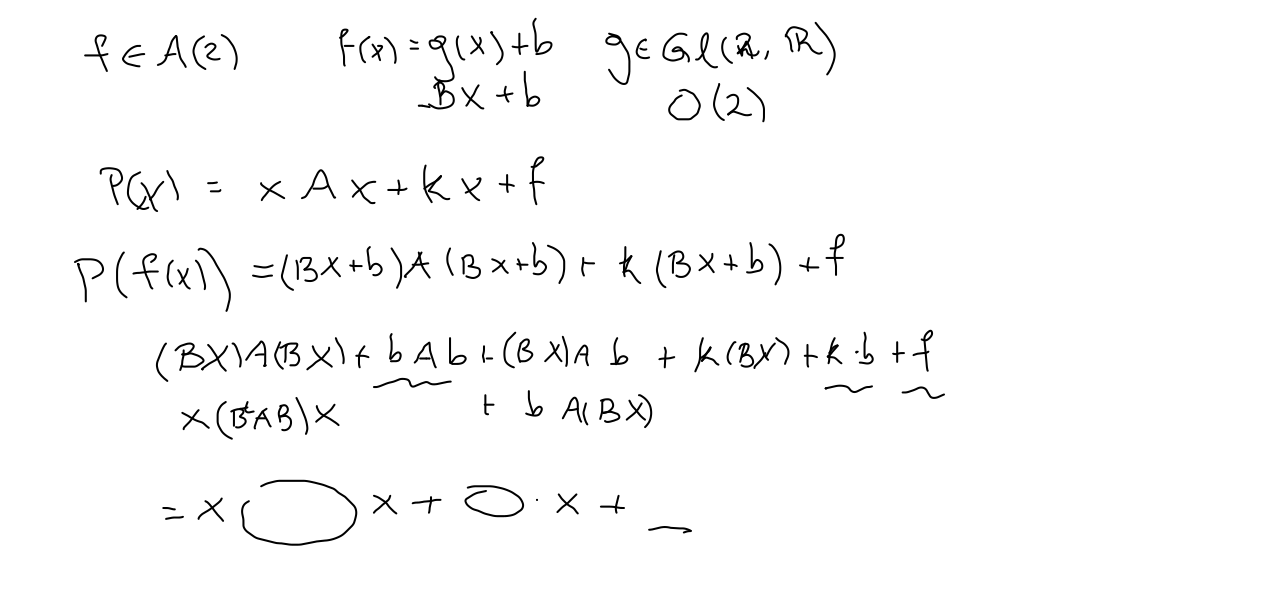 f ∈ A(2) f(x) = g(x) + b g ∈ Gl(2, ℝ)
BX + b O(2)
P(x) = x A x + k x + f
P(f(x)) = (BX+b)A(BX+b) + k(BX+b) + f
(BX)A(BX) + b A b + (BX)A b + k(BX) + k·b + f
x(BᵗAB)x + b A(BX)
= x ( ) x + · x +